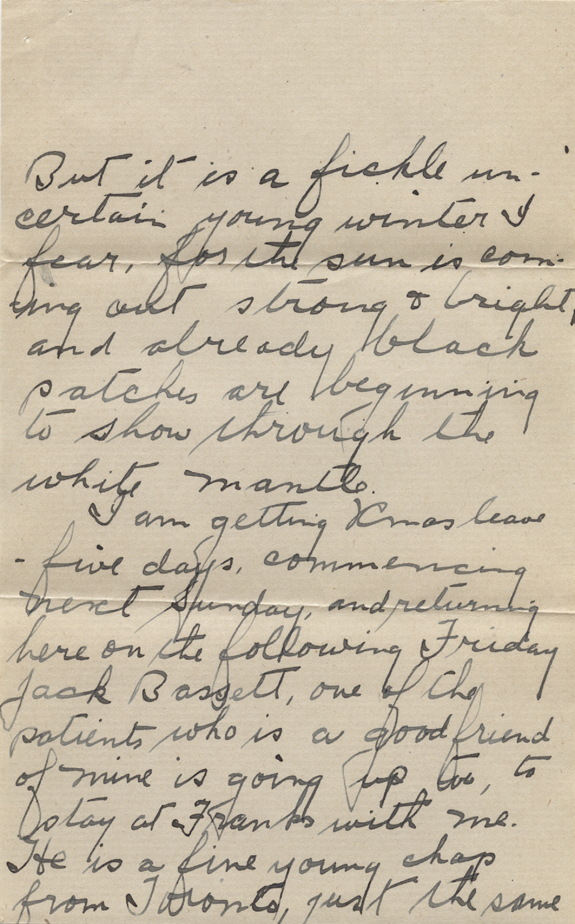 But it is a fickle un-
certain young winter I
fear, for the sun is com-
ing out strong & bright,
and already black
patches are beginning
to show through the
white mantle.
I am getting Xmas leave
- five days, commencing
next Sunday, and returning
here on the following Friday
Jack Bassett, one of the
patients who is a good friend
of mine is going up too, to
stay at Franks with me.
He is a fine young chap
from Toronto, just the same